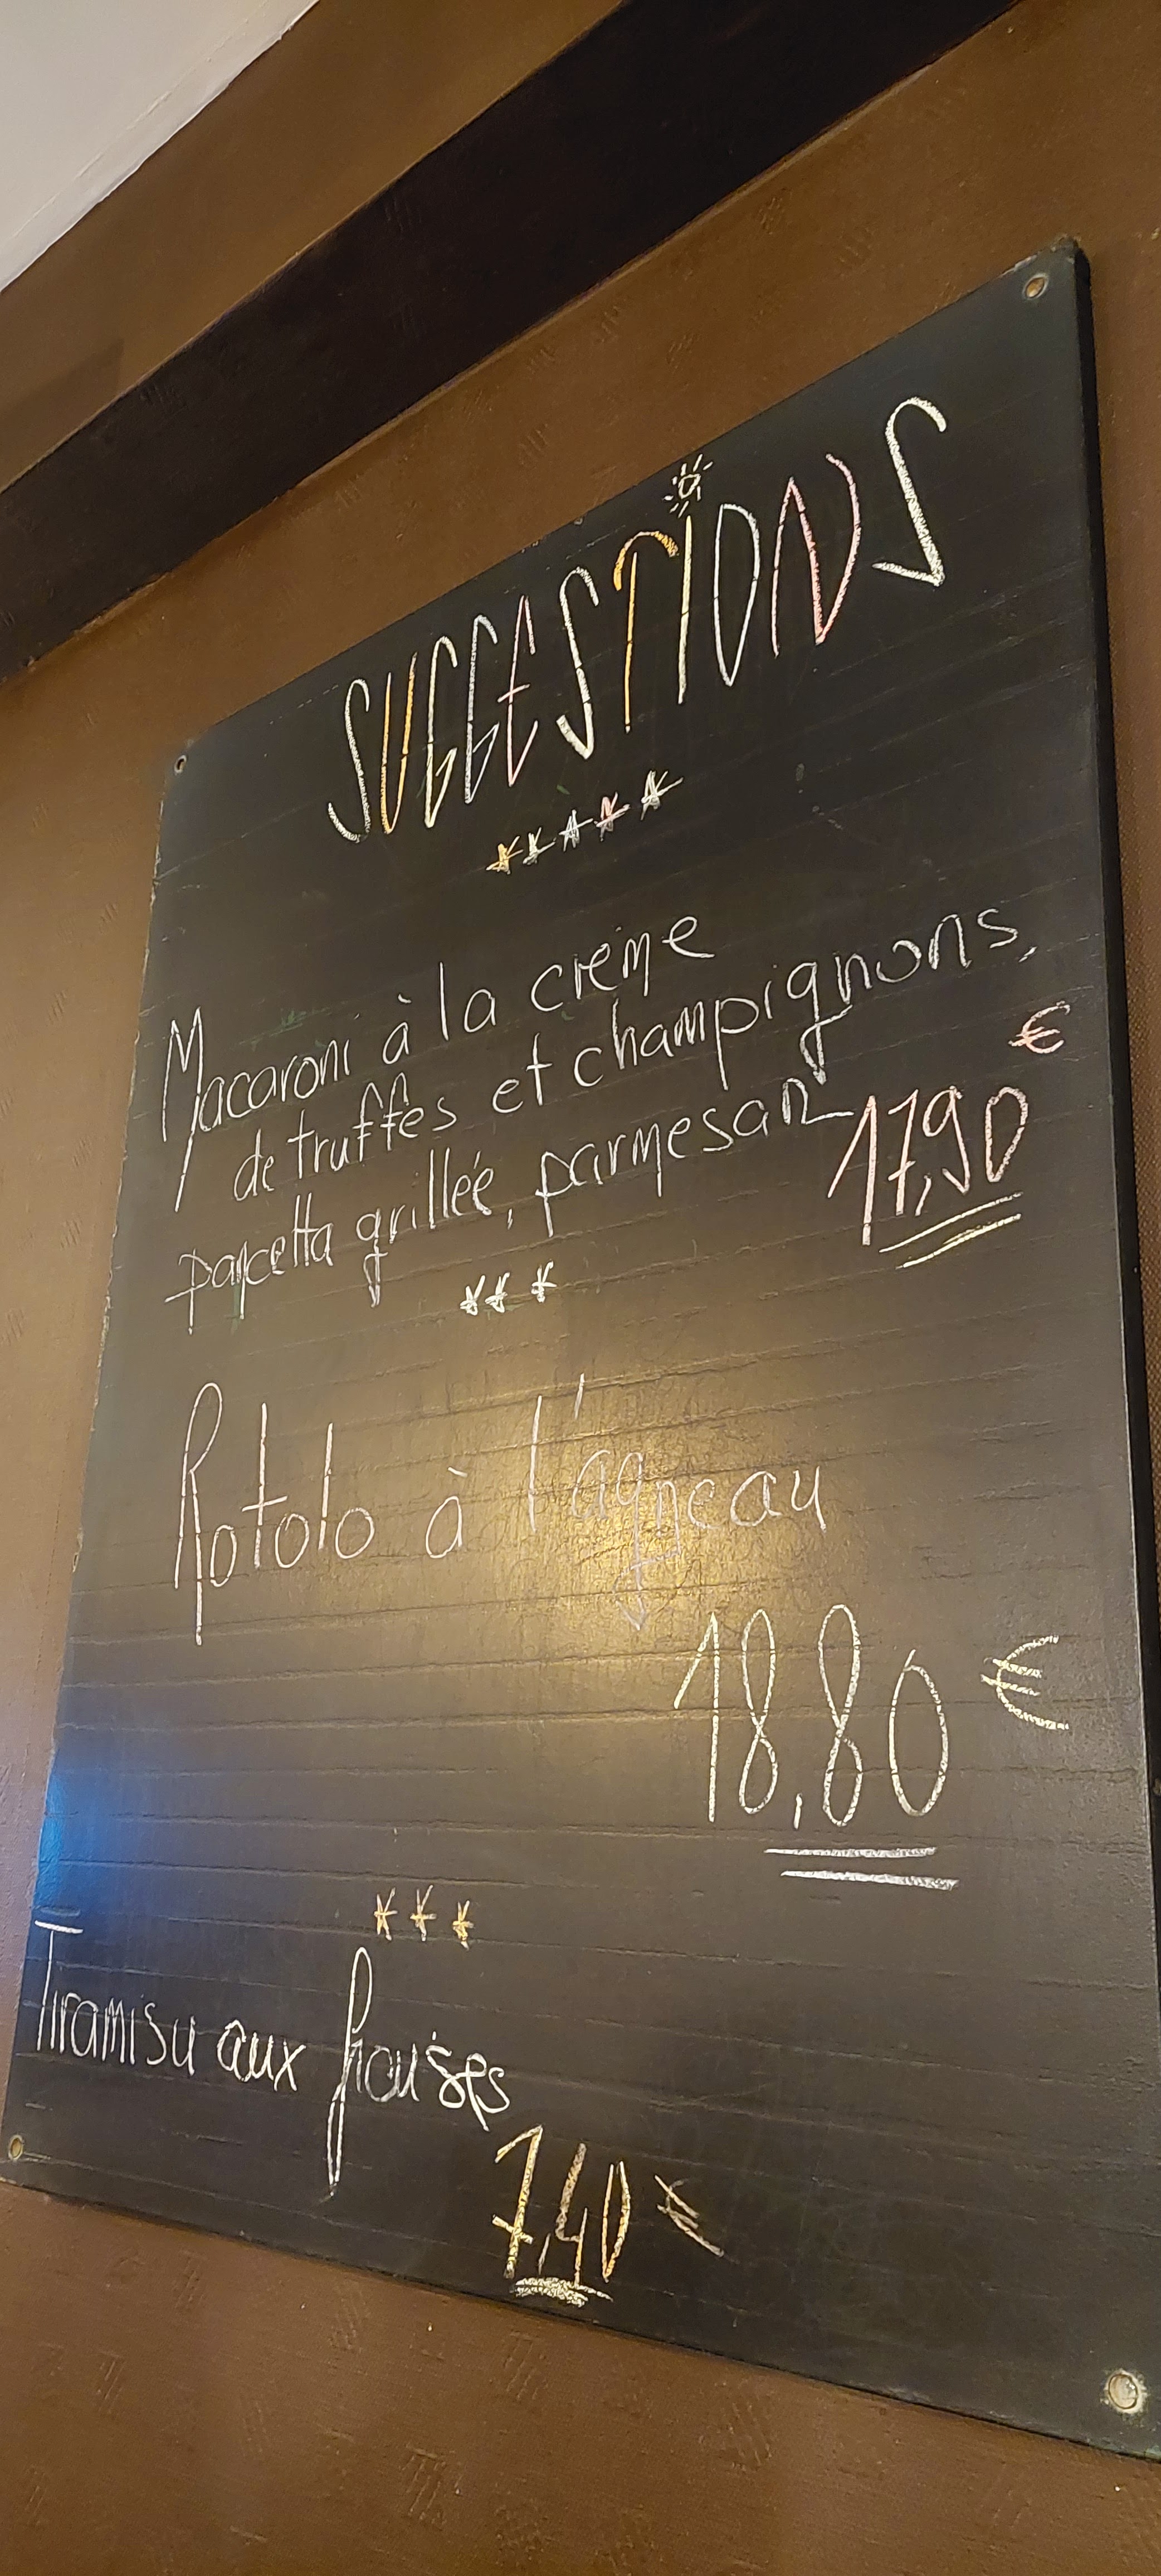 SUGGESTIONS
*****
Macaroni à la crème
de truffes et champignons,
€
pancetta grillée, parmesan 17,90
***
Rotolo à l'agneau
18,80 €
***
Tiramisu aux
7,40 €